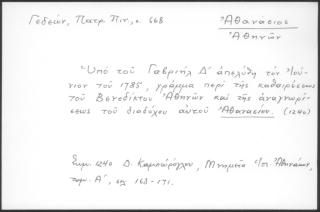 Γεδεών, Πατρ. Πιν., σ. 668
Ἀθανάσιος
Ἀθηνῶν
"Ὑπό τοῦ Γαβριήλ Δ' ἀπελύθη τόν Ἰού-
νιον τοῦ 1785, γράμμα περί τῆς καθαιρέσεως
τοῦ Βενεδίκτου Ἀθηνῶν καί τῆς ἀναγνωρί-
σεως τοῦ διαδόχου αὐτοῦ Ἀθανασίου. (1240)
Σημ. 1240 Δ. Καμπούρογλου, Μνημεῖα Ἀθηναίων,
τομ. Α', σελ. 168-171.